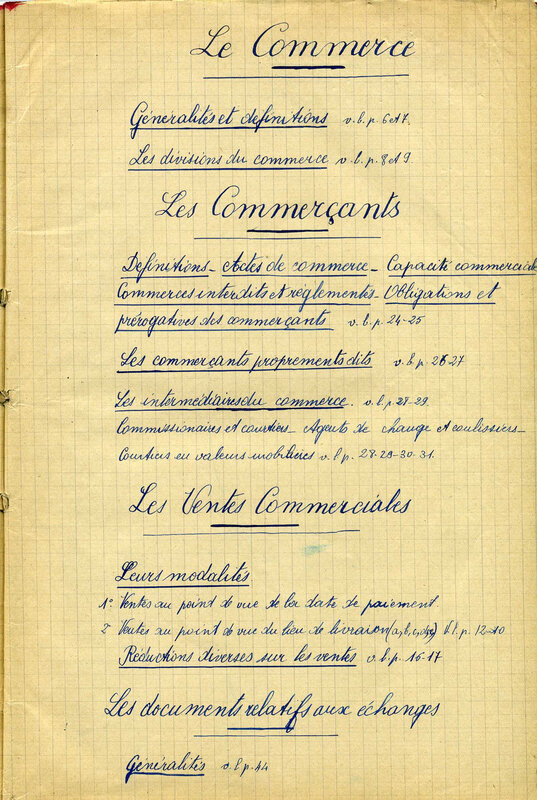 Le Commerce
Généralités et définitions v.l.p. 6 et 7.
Les divisions du commerce v.l.p. 8 et 9.
Les Commerçants
Définitions - Actes de commerce - Capacité commerciale
Commerces interdits et réglementés - Obligations et
prérogatives des commerçants v.l.p. 24-25
Les commerçants proprements dits v.l.p. 26-27
Les intermédiaires du commerce. v.l.p. 28-29.
Commissionaires et courtiers - Agents de change et coulissiers -
Courtiers en valeurs mobilières v.l.p. 28-29-30-31.
Les Ventes Commerciales
Leurs modalités
1° Ventes au point de vue de la date de paiement.
2° Ventes au point de vue du lieu de livraison (a, b, c, d, e) v.l.p. 12
Réductions diverses sur les ventes v.l.p. 16-17
Les documents relatifs aux échanges
Généralités v.l.p. 44